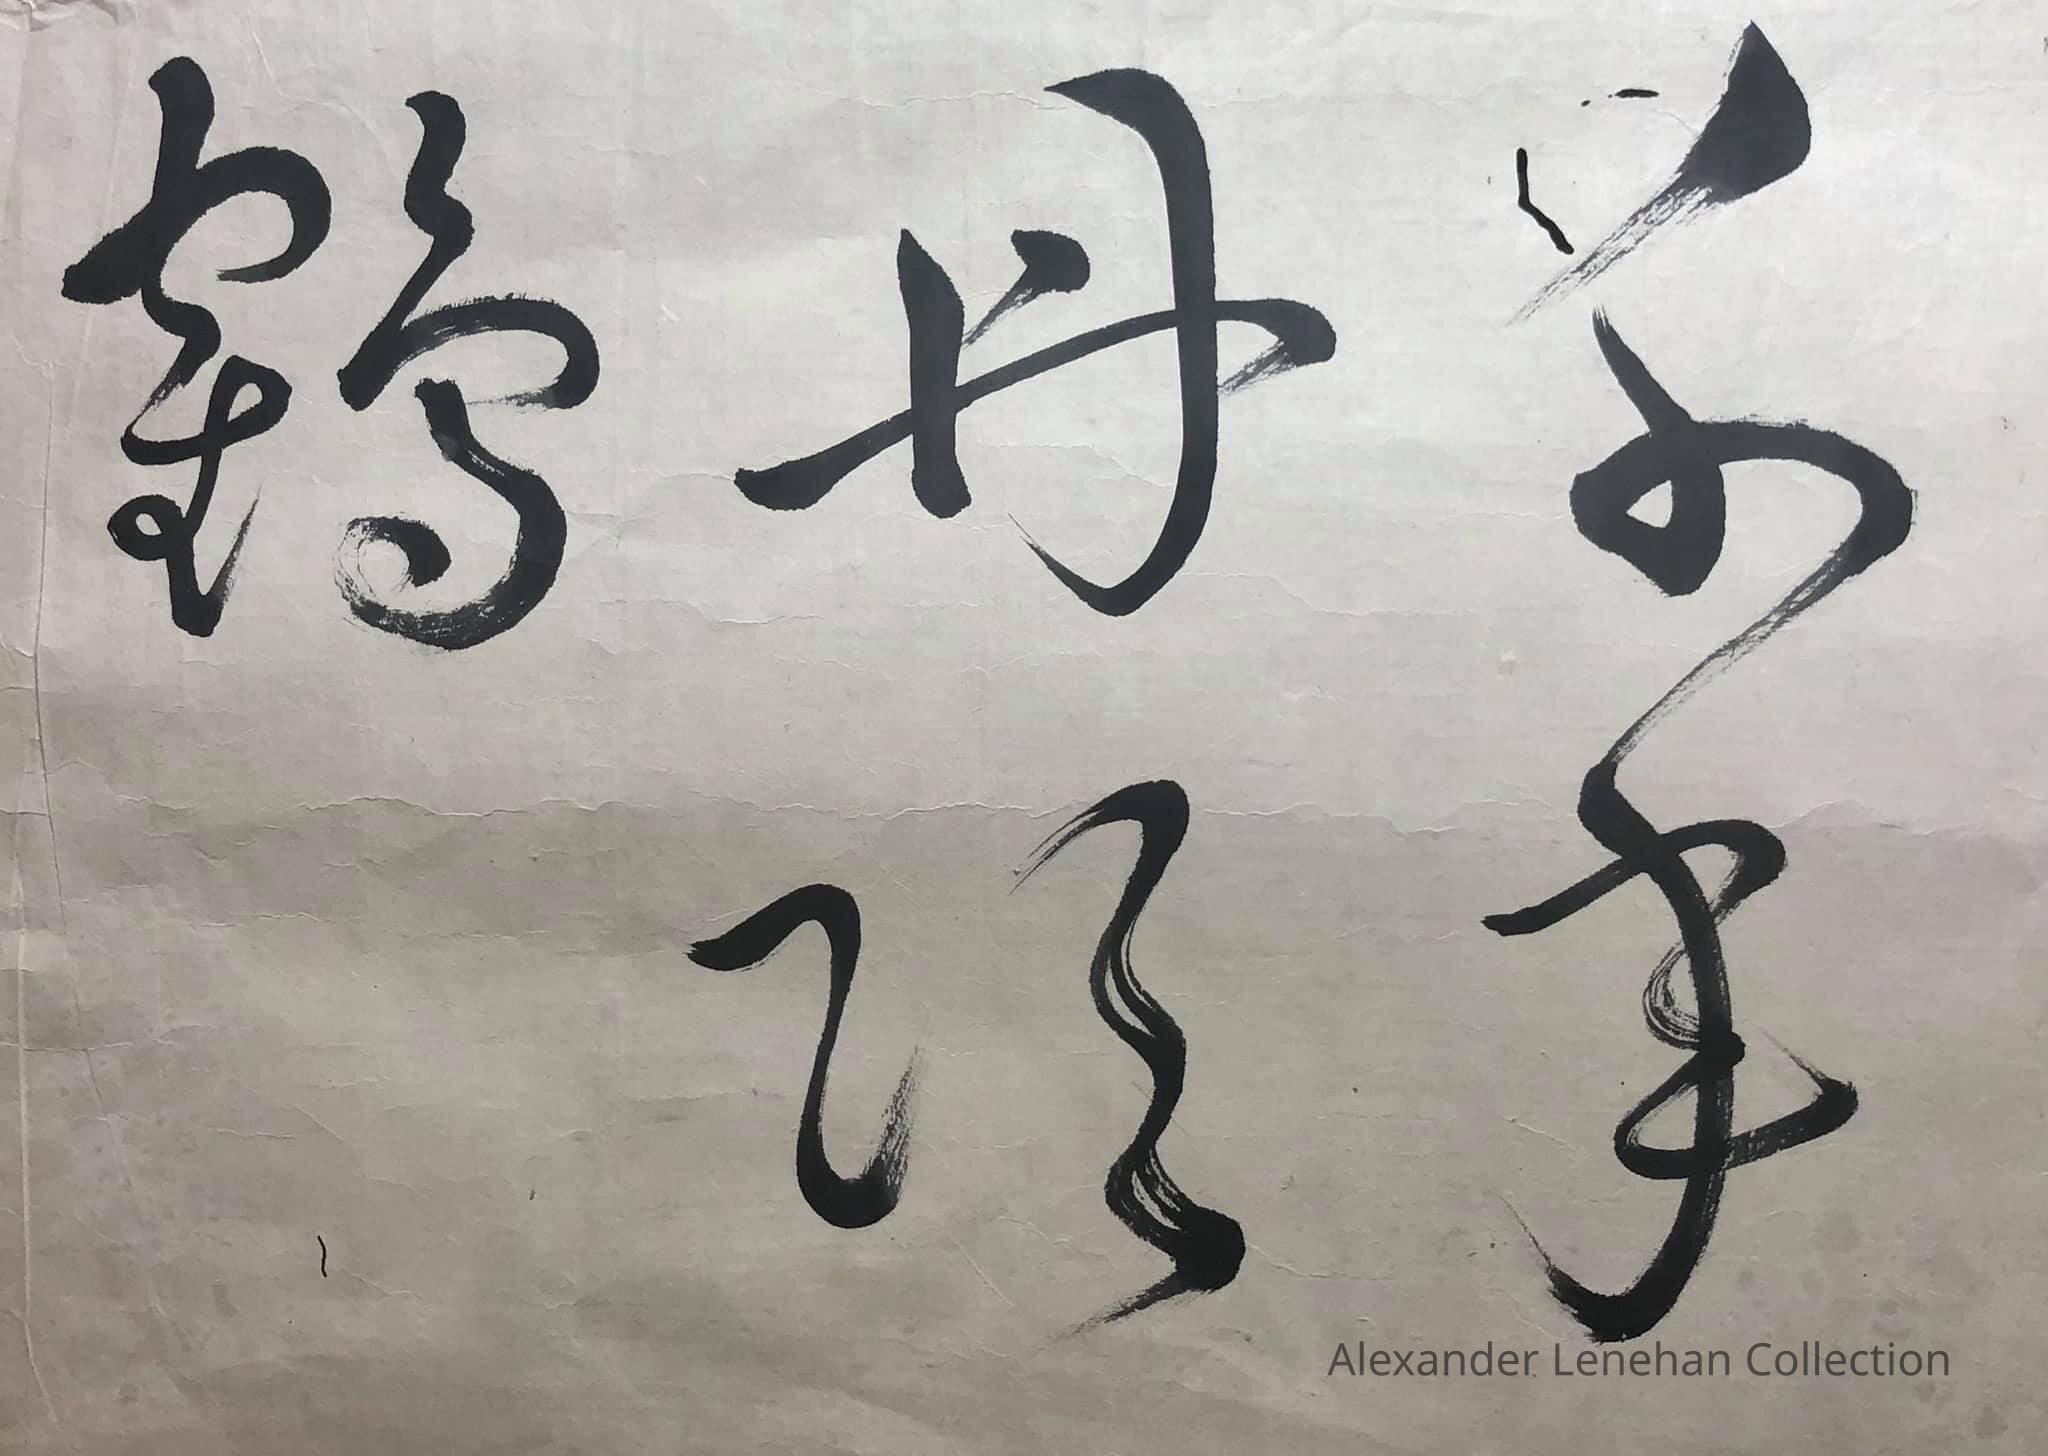 萬年
丹頂
鶴
Alexander Lenehan Collection